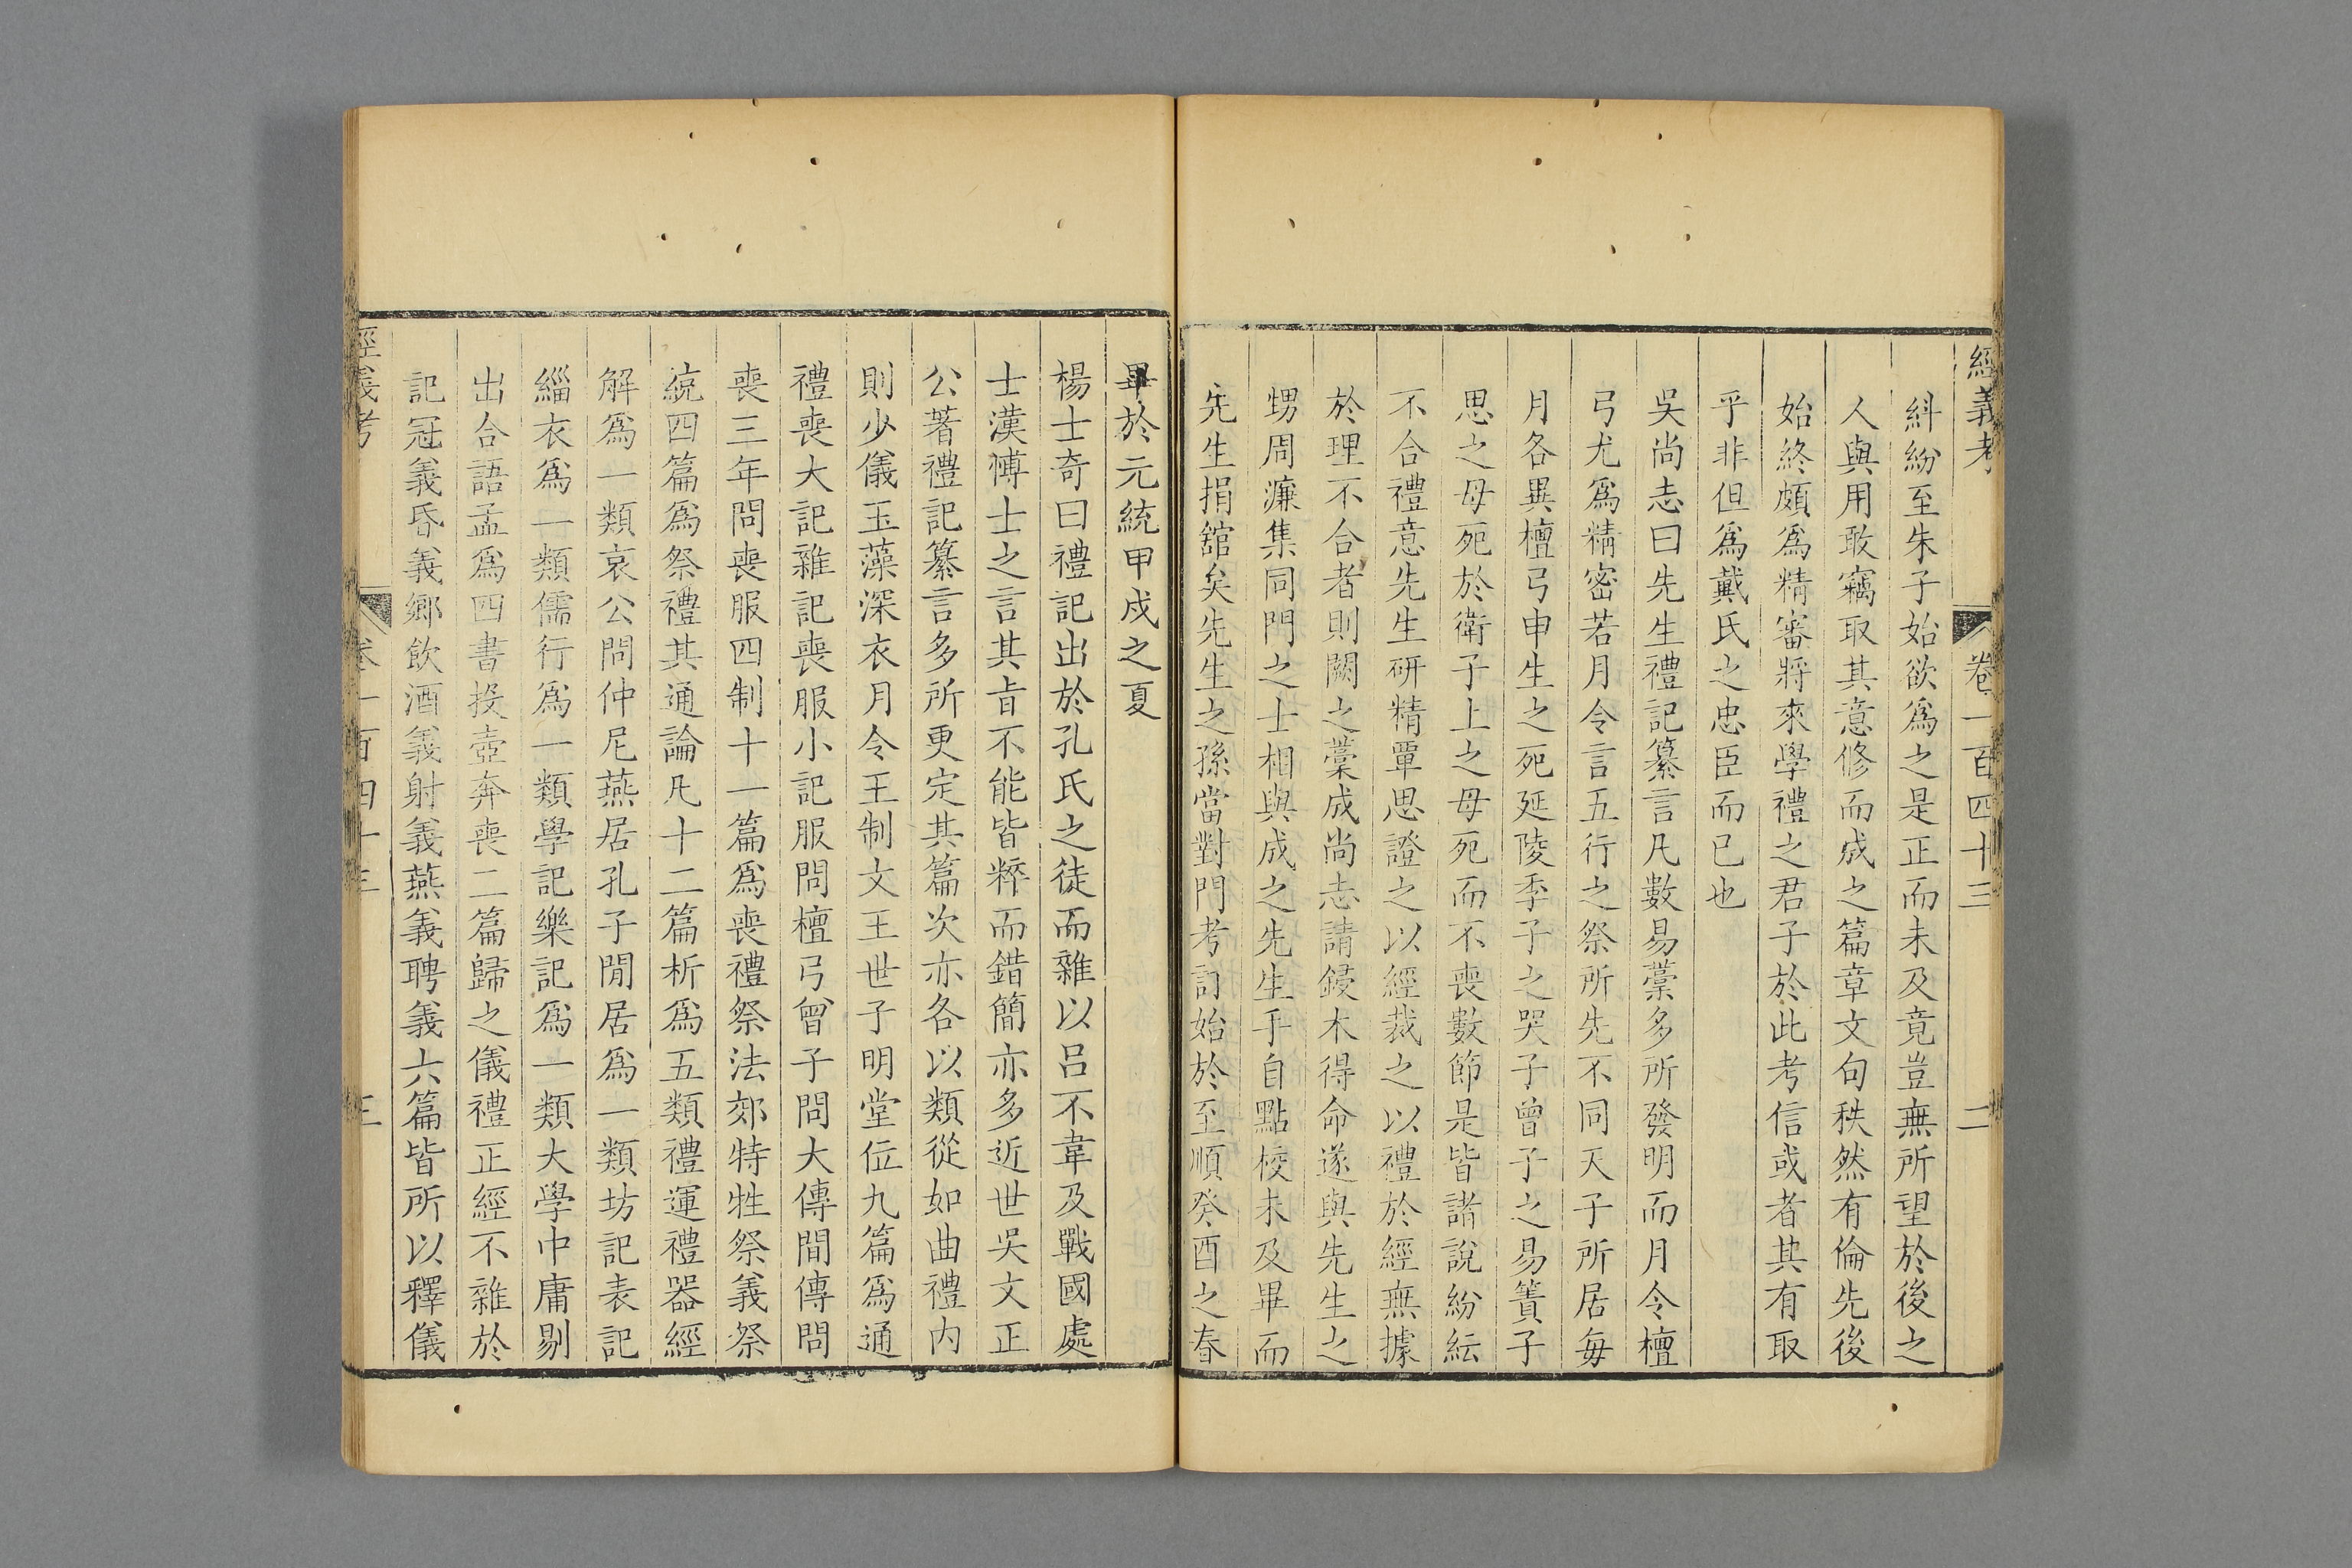 經義考 卷一百四十三 二
糾紛至朱子始欲爲之是正而未及竟豈無所望於後之
人與用敢竊取其意修而成之篇章文句秩然有倫先後
始終頗爲精審將來學禮之君子於此考信或者其有取
乎非但爲戴氏之忠臣而已也
吳尚志曰先生禮記纂言凡數易藁多所發明而月令檀
弓尤爲精密若月令言五行之祭所先不同天子所居每
月各異檀弓申生之死延陵季子之哭子曾子之易簀子
思之母死於衛子上之母死而不喪數節是皆諸說紛紜
不合禮意先生研精覃思證之以經裁之以禮於經無據
於理不合者則闕之藁成尚志請鋟木得命遂與先生之
甥周濂集同門之士相與成之先生手自點校未及畢而
先生捐舘矣先生之孫當對門考訂始於至順癸酉之春
畢於元統甲戌之夏
楊士奇曰禮記出於孔氏之徒而雜以呂不韋及戰國處
士漢博士之言其旨不能皆粹而錯簡亦多近世吳文正
公著禮記纂言多所更定其篇次亦各以類從如曲禮内
則少儀玉藻深衣月令王制文王世子明堂位九篇爲通
禮喪大記雜記喪服小記服問檀弓曾子問大傳間傳問
喪三年問喪服四制十一篇爲喪禮祭法郊特牲祭義祭
統四篇爲祭禮其通論凡十二篇析爲五類禮運禮器經
解爲一類哀公問仲尼燕居孔子閒居爲一類坊記表記
緇衣爲一類儒行爲一類學記樂記爲一類大學中庸剔
出合語孟爲四書投壺奔喪二篇歸之儀禮正經不雜於
記冠義昏義鄉飲酒義射義燕義聘義六篇皆所以釋儀
經義考 卷一百四十三 三